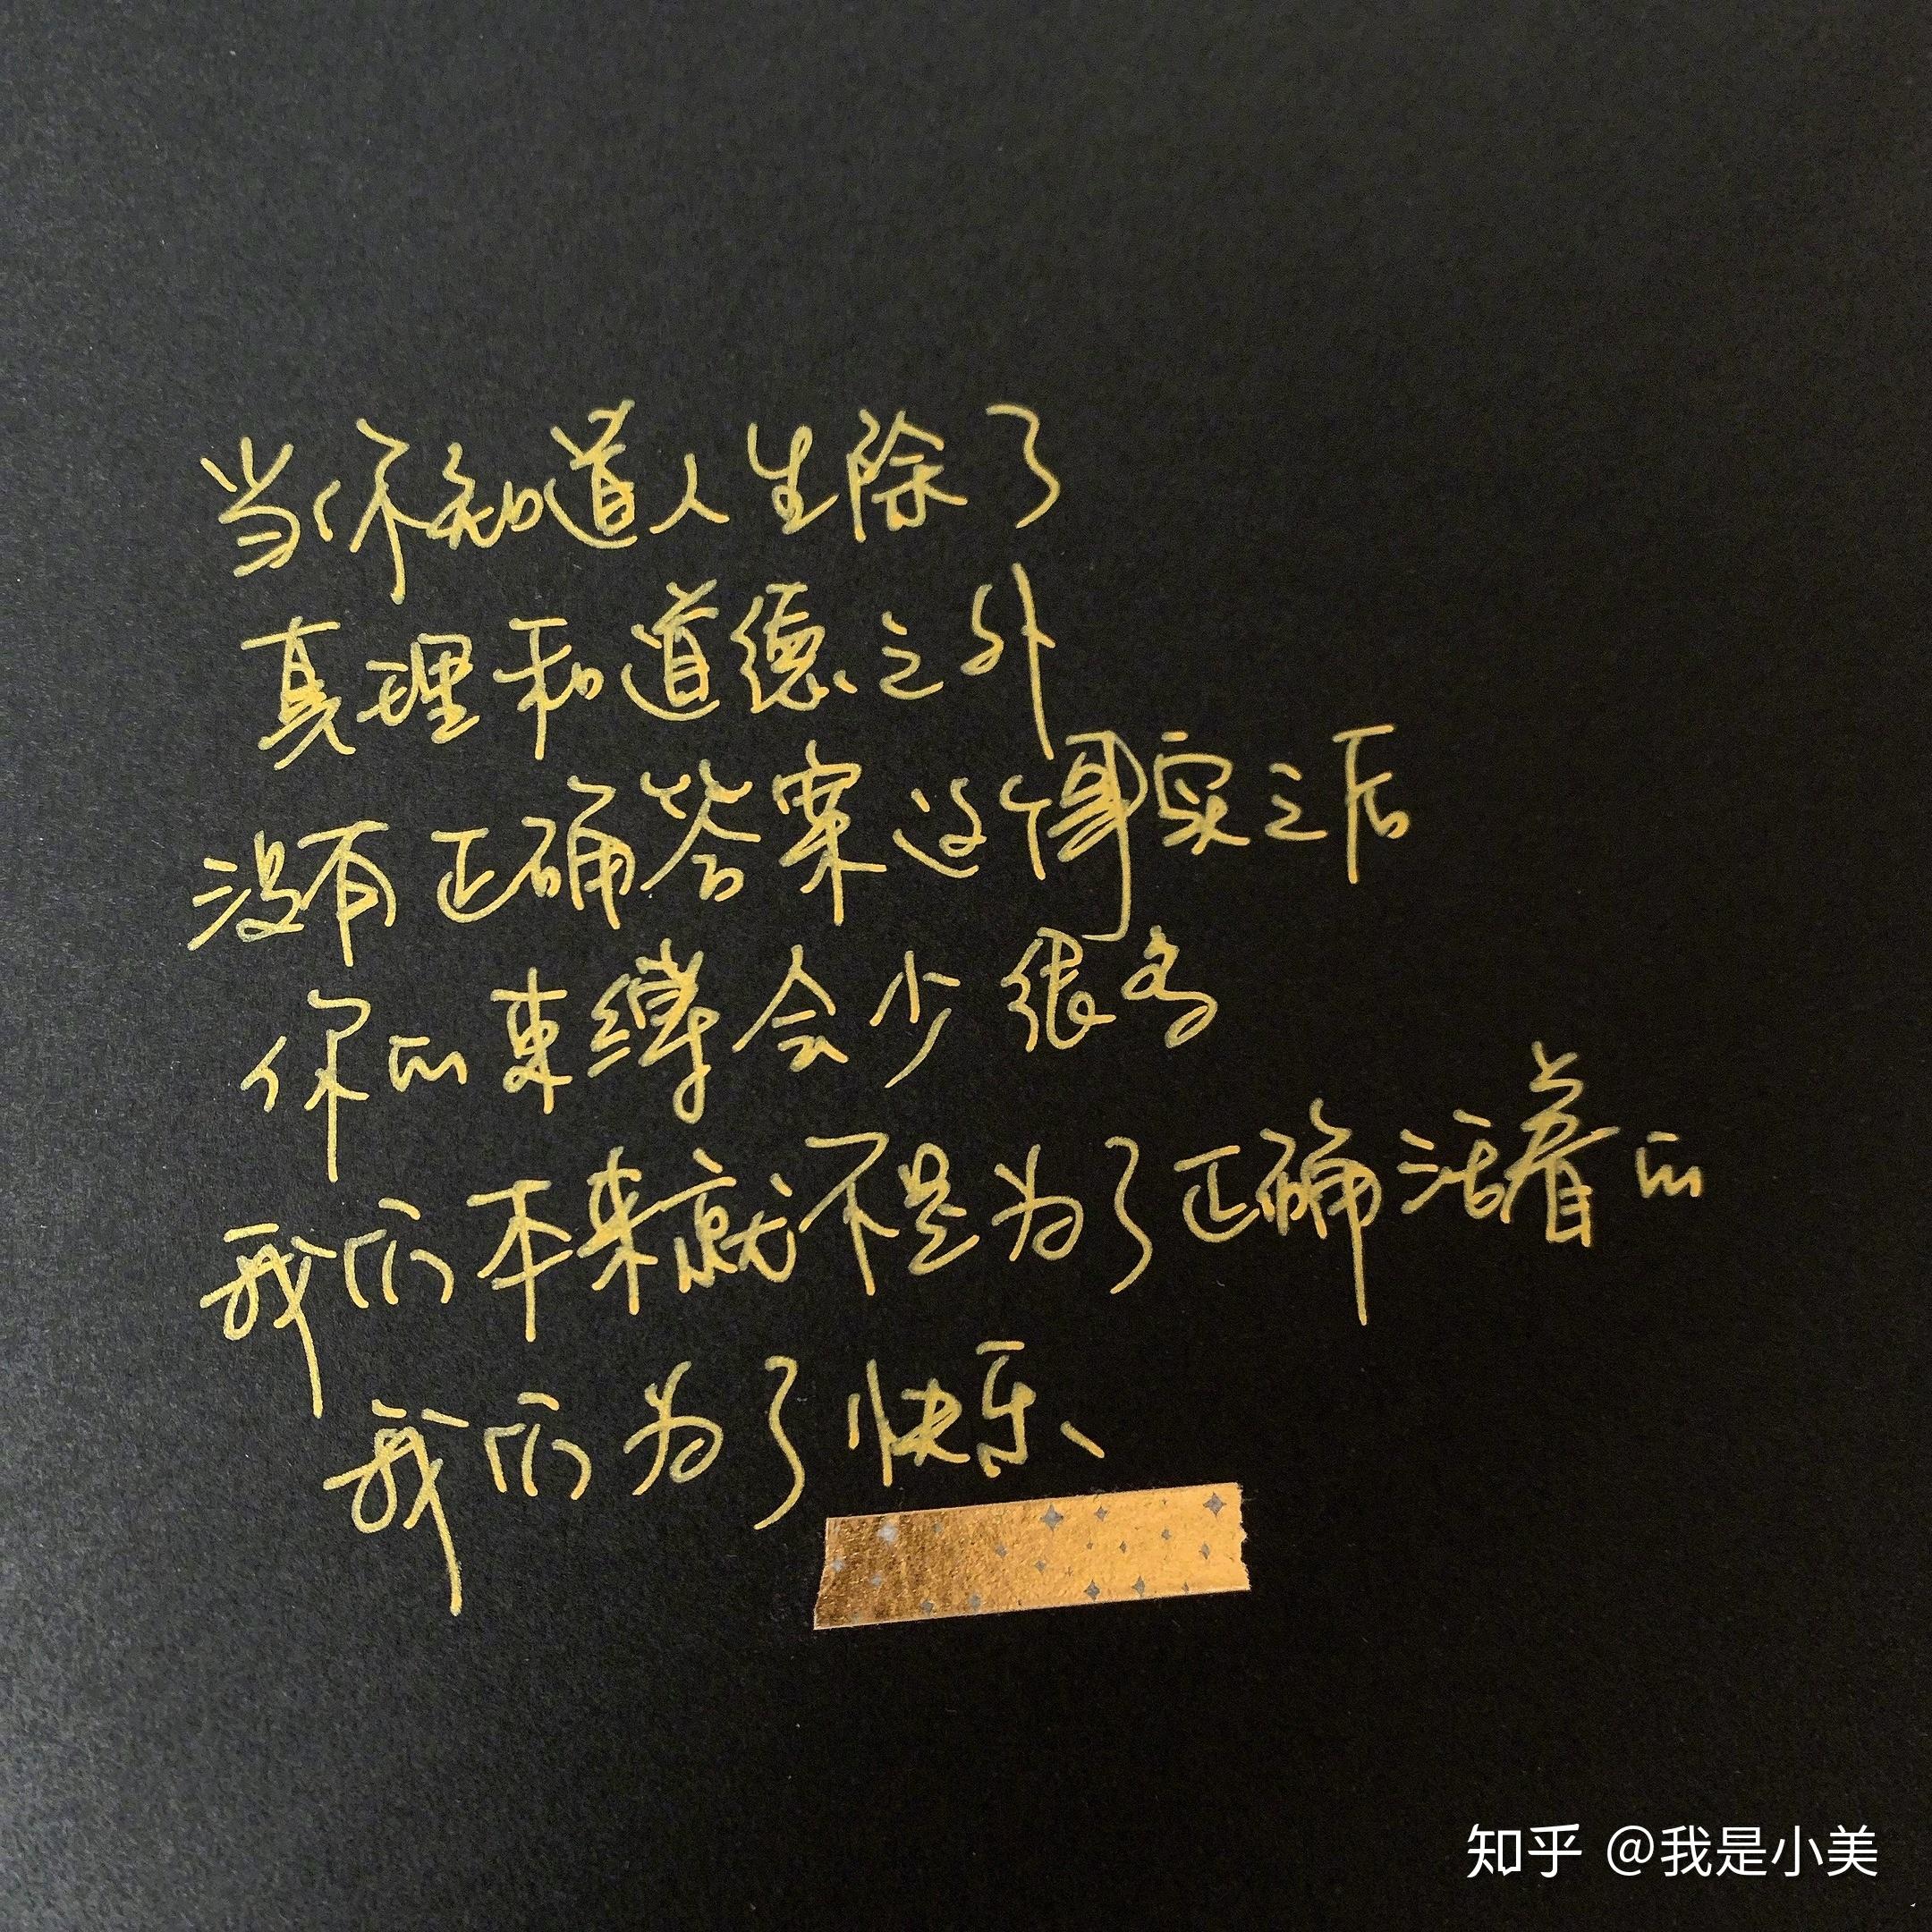 当你知道人生除了
真理和道德之外
没有正确答案这個事实之后
你的束缚会少很多
我们本来就不是为了正确活着的
我们为了快乐、
知乎 @我是小美